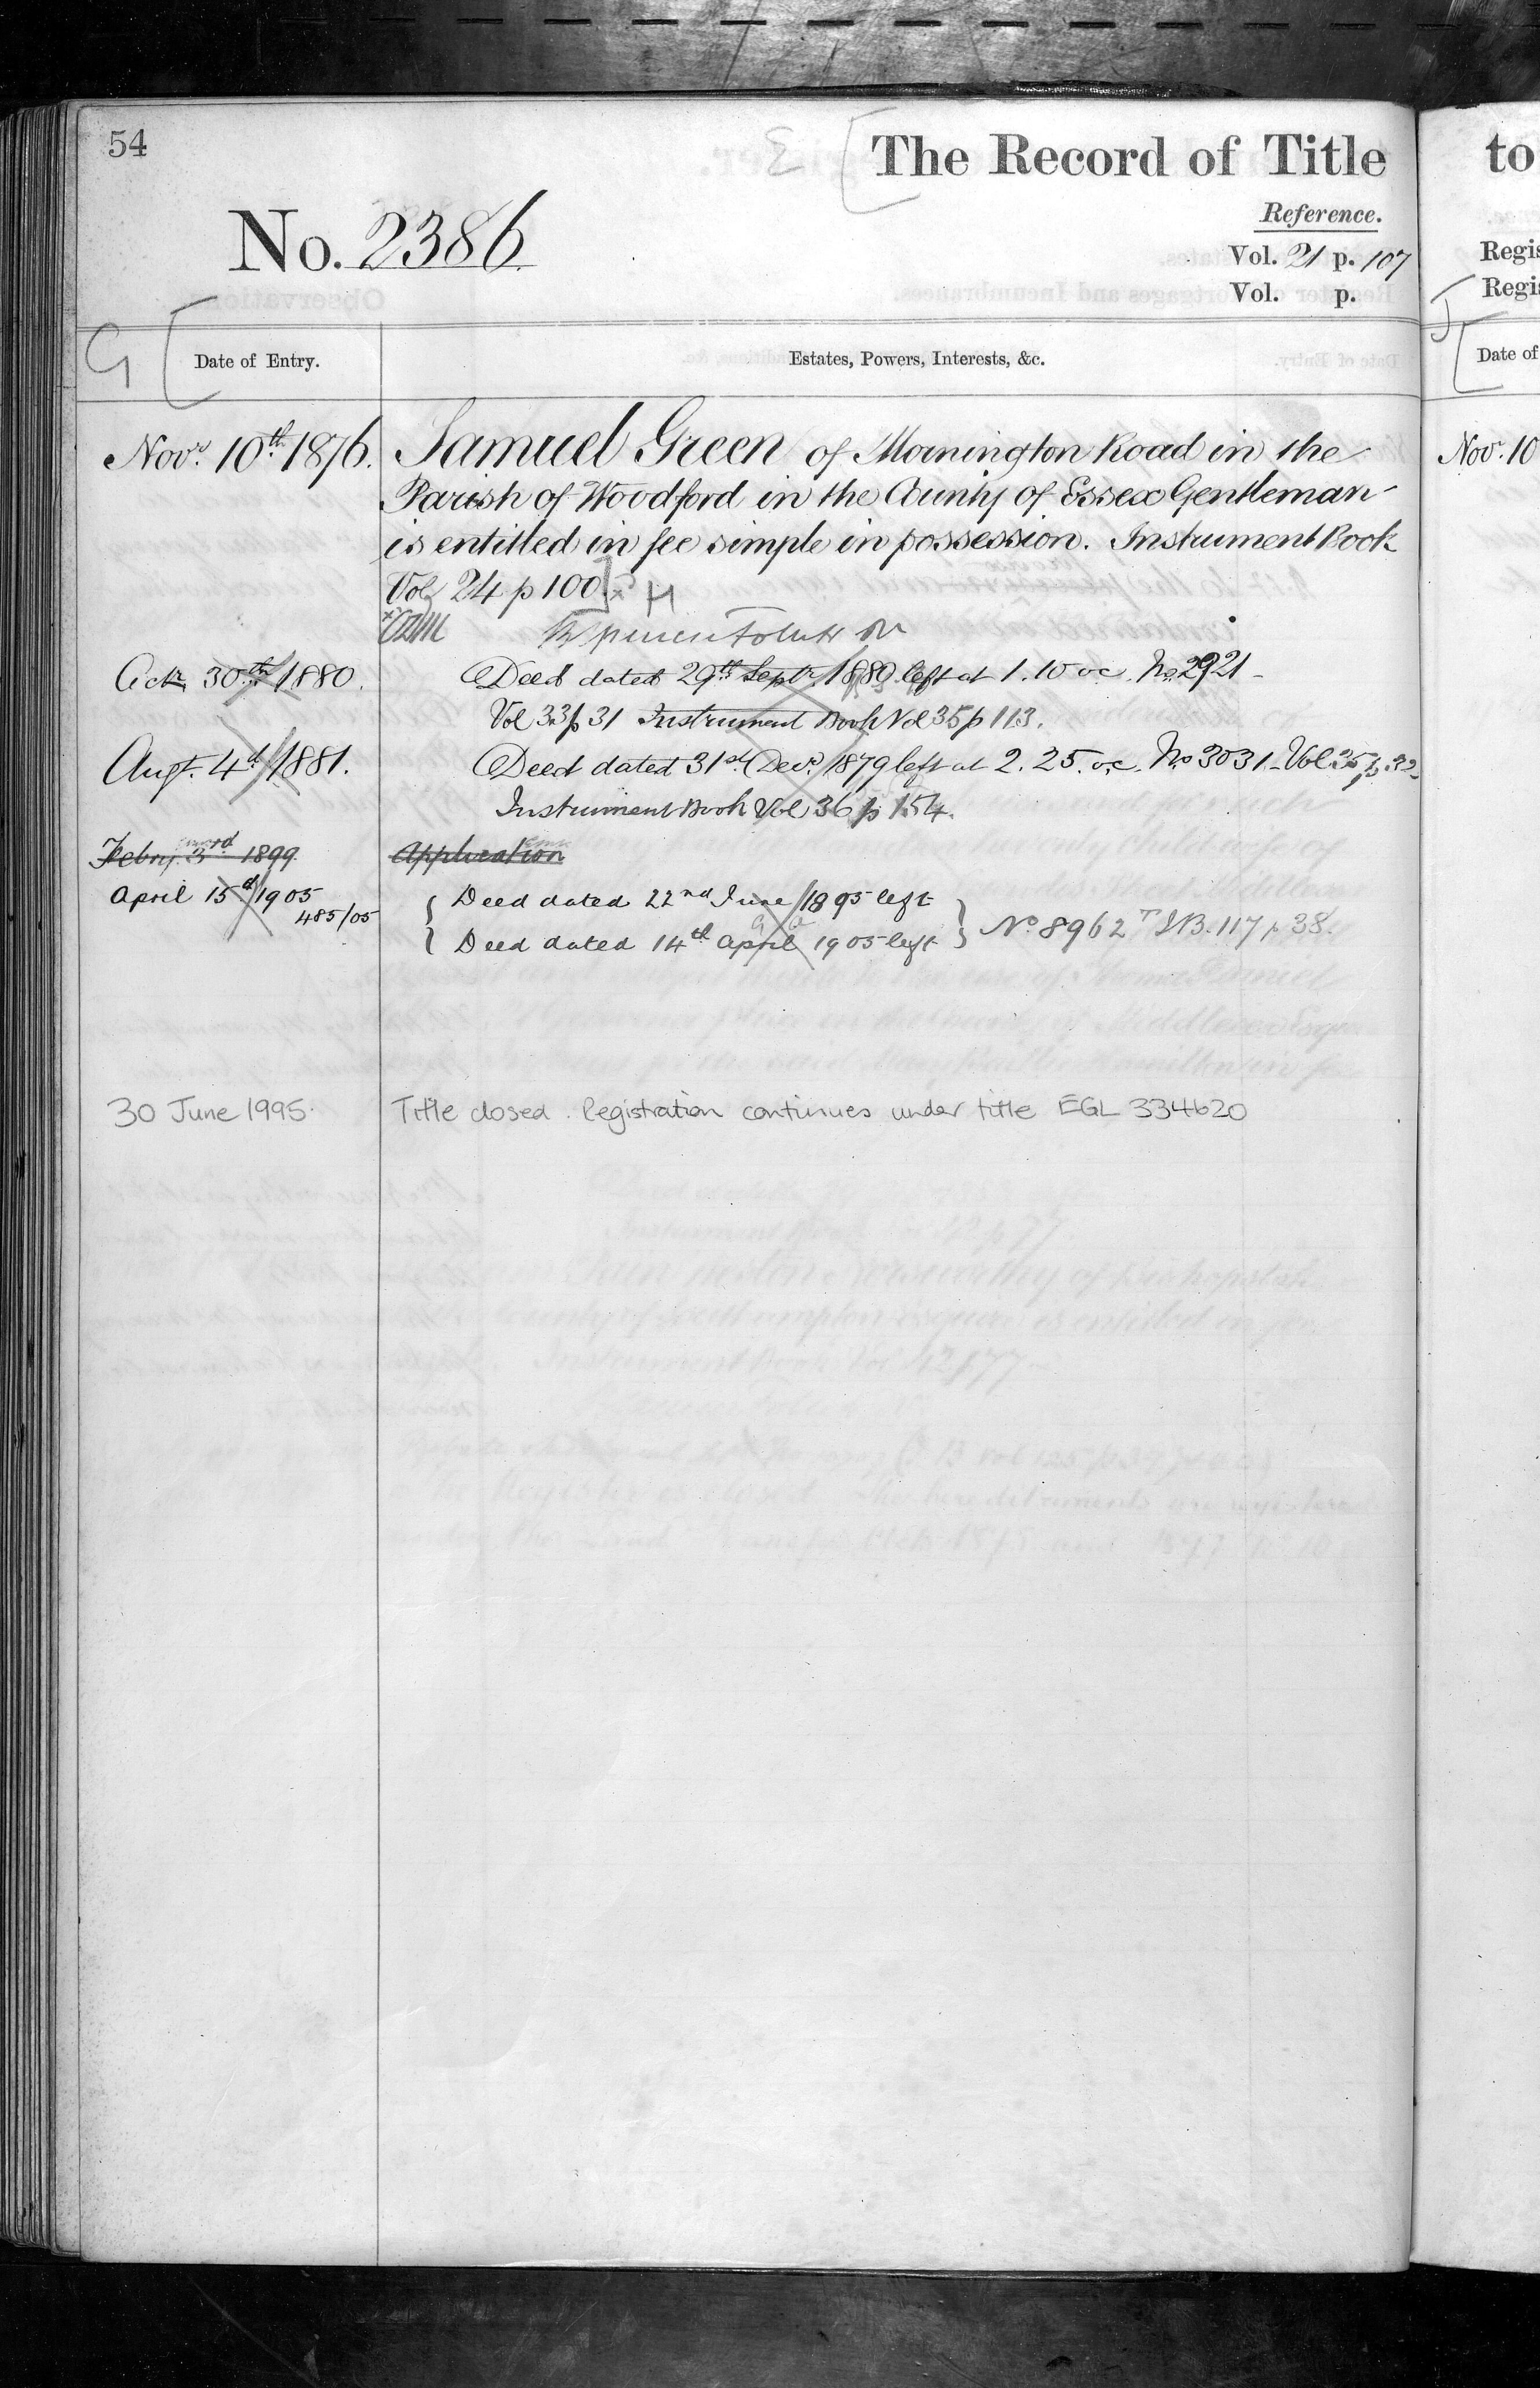 54
The Record of Title
to
Reference.
No. 2386
Vol. 21 p. 107
Regis
Vol. p.
Regi
G
Date of Entry.
Estates, Powers, Interests, &c.
Date of
Novr. 10th 1876.
Samuel Green of Mornington Road in the
Nov. 10
Parish of Woodford in the County of Essex Gentleman
is entitled in fee simple in possession. Instrument Book
Vol 24 p 100 H
Octr. 30th 1880.
Deed dated 29th Septr. 1880 left at 1.10 oc. No 2921
Vol 33 p 31 Instrument Book Vol 35 p 113.
Augt. 4th 1881.
Deed dated 31st Decr. 1879 left at 2.25. oc. No 3031 Vol 35 p 32
Instrument Book Vol 36 p 154.
Febry. 3rd 1899
Application
April 15th 1905
Deed dated 22nd June 1895 left
485/05
Deed dated 14th April 1905 left
No 8962 I B. 117 p 38.
30 June 1995.
Title closed. Registration continues under title EGL 334620